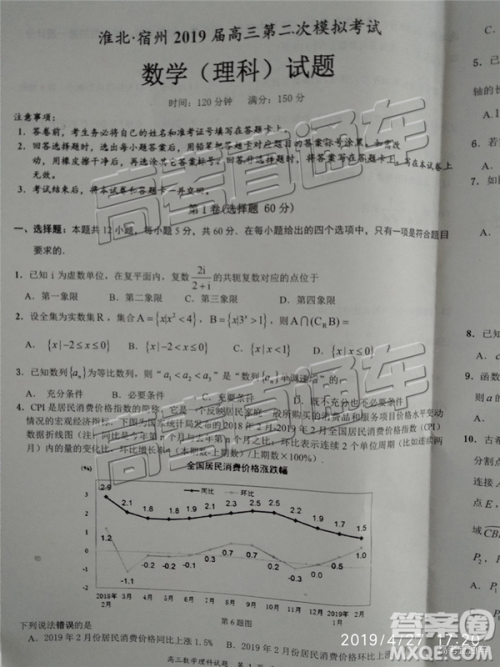 淮北·宿州 2019 届高三第二次模拟考试
数学（理科）试题
时间：120 分钟 满分：150 分
注意事项：
1. 答卷前，考生务必将自己的姓名和准考证号填写在答题卡上。
2. 回答选择题时，选出每小题答案后，用铅笔把答题卡对应题目的答案标号涂黑，如需改
动，用橡皮擦干净后，再选涂其它答案标号。回答非选择题时，将答案写在答题卡上，写在本试卷上
无效。
3. 考试结束后，将本试卷和答题卡一并交回。
第 1 卷(选择题 60 分)
一、选择题：本题共 12 小题，每小题 5 分，共 60 分．在每小题给出的四个选项中，只有一项是符合题目
要求的．
1．已知 i 为虚数单位，在复平面内，复数 2i/(2+i) 的共轭复数对应的点位于
A．第一象限 B．第二象限 C．第三象限 D．第四象限
2．设全集为实数集 R，集合 A={x|x²<4}，B={x|3ˣ>1}，则 A∩(C_R B)=
A．{x|-2≤x≤0} B．{x|-2<x≤0} C．{x|x<1} D．{x|x≤0}
3．已知数列{aₙ}为等比数列，则“a₁<a₂<a₃”是“数列{aₙ}单调递增”的
A．充分条件 B．必要条件 C．充要条件 D．既不充分也不必要条件
4．CPI 是居民消费价格指数的简称，它是一个反映居民家庭一般所购买的消费品和服务项目价格水平变动
情况的宏观经济指标．下图为国家统计局发布的 2018 年 2 月-2019 年 2 月全国居民消费价格指数（CPI）
数据折线图（注：同比是今年第 n 个月与去年第 n 个月之比；环比表示连续 2 个单位周期（比如连续两
月）内的量的变化比，环比增长率=(本期数-上期数)/上期数×100%）
(%)
全国居民消费价格涨跌幅
同比 环比
2.9 2.1 1.8 1.8 1.9 2.1 2.3 2.5 2.5 2.2 1.9 1.7 1.5
1.2 -1.1 0.7 0.5 1.0
2018年 2月 3月 4月 5月 6月 7月 8月 9月 10月 11月 12月 2019年 1月 2月
第 6 题图
下列说法错误的是
A．2019 年 2 月份居民消费价格同比上涨 1.5%
B．2019 年 2 月份居民消费价格环比上涨
高三数学理科试题
高考直通车
答案圈
2019/4/27 17:20